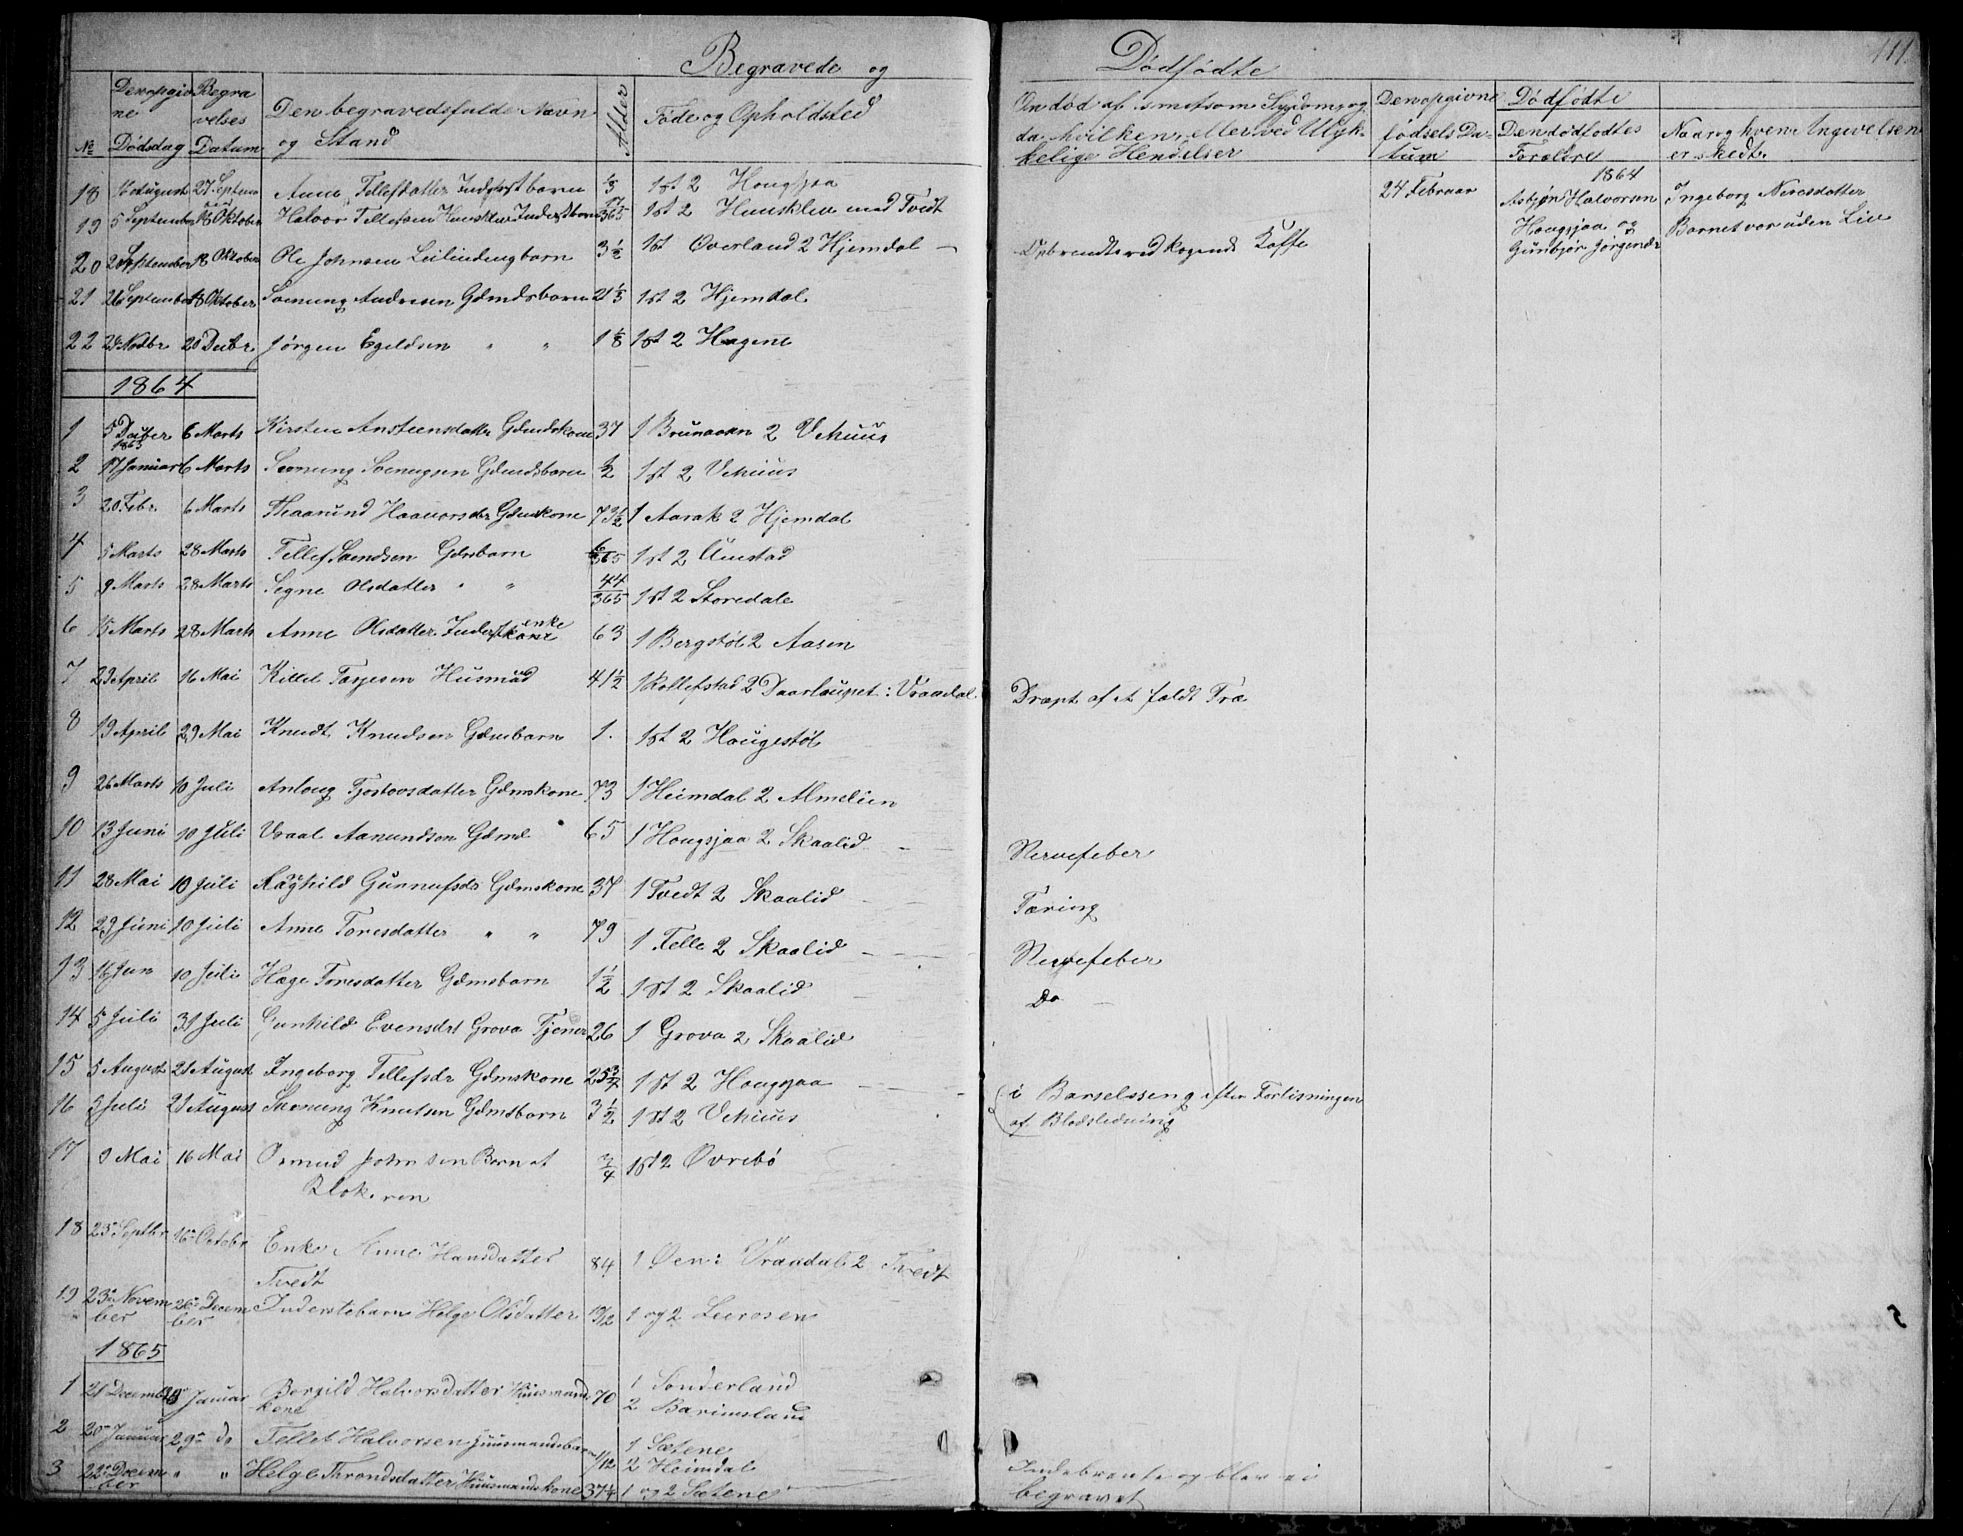 Begravede og
Dødfødte
111.
№
Denopgivne Dødsdag
Begravelses Datum
Den begravedsfulde Navn og Stand
Alder
Føde og Opholdsted
Om død af smitsom Sygdom, og da hvilken, eller ved Ulykkelige Hendelser
Denopgivne fødsels Datum
Dødfødte
Dendødfødtes Forældre
Naar og hvem Ingivelsen er skedt.
18 August 27 Septem Anne Tellefsdatter Inderstbarn 1/3 1st 2 Hougsjaa
24 Februar
1864
Asbjørn Halvorsen Hougsjaa og Gunbjør Jørgensdr
Ingeborg Neresdatter
Barnet var uden Liv
19 5 September 18 Oktober Halvor Tellefsen Inderstbarn 17/365 1st 2 Huusklev med Tvedt
20 September 18 Oktober Ole Johnsen Leilendingbarn 3 1/2 1st Overland 2 Hjemdal
Opbrendt ved kogende Kaffe
21 26 September 18 Oktober Søenung Andresen Gdmdsbarn 2 1/3 1st 2 Hjemdal
22 29 Novbr 20 Decbr Jørgen Egeldsen " " 1 1/8 1st 2 Hagene
1864
1 5 Decber 1863 6 Marts Kirsten Anstensdatter Gdmdskone 37 1 Brunaasen 2 Vehuus
2 17 Januar 6 Marts Søenung Søenugsen Gdmdsbarn 1/2 1st 2 Vehuus
3 20 Febr. 6 Marts Thaarund Haavorsdr Gdmskone 73 1/2 1 Aarak 2 Hjemdal
4 5 Marts 28 Marts Tellef Svendsen Gdmsbarn 6/365 1st 2 Unstad
5 9 Marts 28 Marts Segne Olsdatter " " 44/365 1st 2 Storedale
6 15 Marts 28 Marts Anne Olsdatter Inderstenke 63 1 Bergstøl 2 Aasen
7 29 April 16 Mai Killed Tarjesen Husmand 41 1/2 1 Rollefstad 2 Daarlaupet i Vraadal
Dræpt af et faldt Træ
8 19 April 29 Mai Knudt Knudsen Gdmsbarn 1. 1st 2 Hougestøl
9 26 Marts 10 Juli Anloug Tjøstovsdatter Gdmskone 73 1 Heimdal 2 Almelien
10 13 Juni 10 Juli Vraal Aanundsen Gdmd 65 1 Hougsjaa 2 Skaalid
Nervefeber
11 28 Mai 10 Juli Raghild Gunnufsdr Gdmskone 37 1 Tvedt 2 Skaalid
Tæring
12 29 Juni 10 Juli Anne Toresdatter " " 79 1 Felle 2 Skaalid
Nervefeber
13 16 Jun 10 Juli Hæge Toresdatter Gdmsbarn 1 1/2 1st 2 Skaalid
Do
14 5 Juli 31 Juli Gunhild Evensdt Grova Tjener 26 1 Grova 2 Skaalid
15 5 August 21 August Ingeborg Tellefsdr Gdmskone 25 3/4 1st 2 Hougsjaa
i Barselsseng efter Forlisningen af Blodstedning
16 5 Juli 21 August Søenung Knutsen Gdmsbarn 3 1/2 1st 2 Vehuus
17 9 Mai 16 Mai Osmund Johnsen Barn af 3/4 1st 2 Øvrebø
18 23de Septbr 16de Octobr Enke Anne Hansdatter Tvedt 84 1 Øen i Vraadal 2 Tvedt
19 23de November 26de December Inderstebarn Helge Olsdatter 1 og 2 Leirosen
1865
1 21 Decemb Januar Bergild Halvorsdatter Huusmandskone 70 1 Sønderland 2 Barimsland
2 20de Januar 29de do Tellef Halvorsen Huusmandsbarn /12 1 Sætene 2 Heimdal
3 22de December " " Helge Throndsdatter Huusmandskone 37 1/4 1 og 2 Sætene
Indebrændte og blev ei begravet